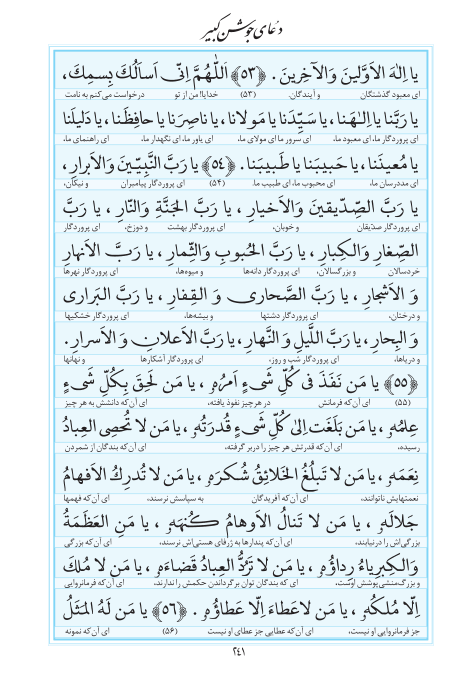 دعای جوشن کبیر
یا اِلٰهَ الاَوَّلینَ وَالآخِرینَ . ﴿٥٣﴾ اَللّٰهُمَّ اِنّی اَساَلُكَ بِسمِكَ،
ای معبود گذشتگان و آیندگان. (۵۳) خدایا! من از تو درخواست می‌کنم به نامت
یا رَبَّنا یا اِلـٰهَنا، یا سَیِّدَنا یا مَولانا ، یا ناصِرَنا یا حافِظَنا ، یا دَلیلَنا
ای پروردگار ما، ای معبود ما، ای سرور ما ای مولای ما، ای یاور ما، ای نگهدار ما، ای راهنمای ما،
یا مُعینَنا ، یا حَبیبَنا یا طَبیبَنا . ﴿٥٤﴾ یا رَبَّ النَّبِیّینَ وَالاَبرارِ ،
ای مددرسان ما، ای محبوب ما، ای طبیب ما. (۵۴) ای پروردگار پیامبران و نیکان،
یا رَبَّ الصِّدّیقینَ وَالاَخیارِ ، یا رَبَّ الجَنَّةِ وَالنّارِ ، یا رَبَّ
ای پروردگار صدّیقان و خوبان، ای پروردگار بهشت و دوزخ، ای پروردگار
الصِّغارِ وَالکِبارِ ، یا رَبَّ الحُبوبِ وَالثِّمارِ ، یا رَبَّ الاَنهارِ
خردسالان و بزرگسالان، ای پروردگار دانه‌ها و میوه‌ها، ای پروردگار نهرها
وَ الاَشجارِ ، یا رَبَّ الصَّحاری وَ القِفارِ ، یا رَبَّ البَراری
و درختان، ای پروردگار دشتها و بیشه‌ها، ای پروردگار خشکیها
وَالبِحارِ ، یا رَبَّ اللَّیلِ وَ النَّهارِ ، یا رَبَّ الاَعلانِ وَ الاَسرارِ .
و دریاها، ای پروردگار شب و روز، ای پروردگار آشکارها و نهانها
﴿٥٥﴾ یا مَن نَفَذَ فی کُلِّ شَیءٍ اَمرُهُ ، یا مَن لَحِقَ بِکُلِّ شَیءٍ
(۵۵) ای آن‌که فرمانش در هر چیز نفوذ یافته، ای آن‌که دانشش به هر چیز
عِلمُهُ ، یا مَن بَلَغَت اِلیٰ کُلِّ شَیءٍ قُدرَتُهُ ، یا مَن لا تُحصِی العِبادُ
رسیده، ای آن‌که قدرتش هر چیز را دربر گرفته، ای آن‌که بندگان از شمردن
نِعَمَهُ ، یا مَن لا تَبلُغُ الخَلائِقُ شُکرَهُ ، یا مَن لا تُدرِكُ الاَفهامُ
نعمتهایش ناتوانند، ای آن‌که آفریدگان به سپاسش نرسند، ای آن‌که فهمها
جَلالَهُ ، یا مَن لا تَنالُ الاَوهامُ کُنهَهُ ، یا مَنِ العَظَمَةُ
بزرگی‌اش را درنیابند، ای آن‌که پندارها به ژرفای هستی‌اش نرسند، ای آن‌که بزرگی
وَالکِبرِیاءُ رِداؤُهُ ، یا مَن لا تَرُدُّ العِبادُ قَضاءَهُ ، یا مَن لا مُلكَ
و بزرگ‌منشی پوشش اوست، ای که بندگان توان برگرداندن حکمش را ندارند، ای آن‌که فرمانروایی
اِلّا مُلکُهُ ، یا مَن لاعَطاءَ اِلّا عَطاؤُهُ . ﴿٥٦﴾ یا مَن لَهُ المَثَلُ
جز فرمانروایی او نیست، ای آن‌که عطایی جز عطای او نیست (۵۶) ای آن‌که نمونه
۲۴۱